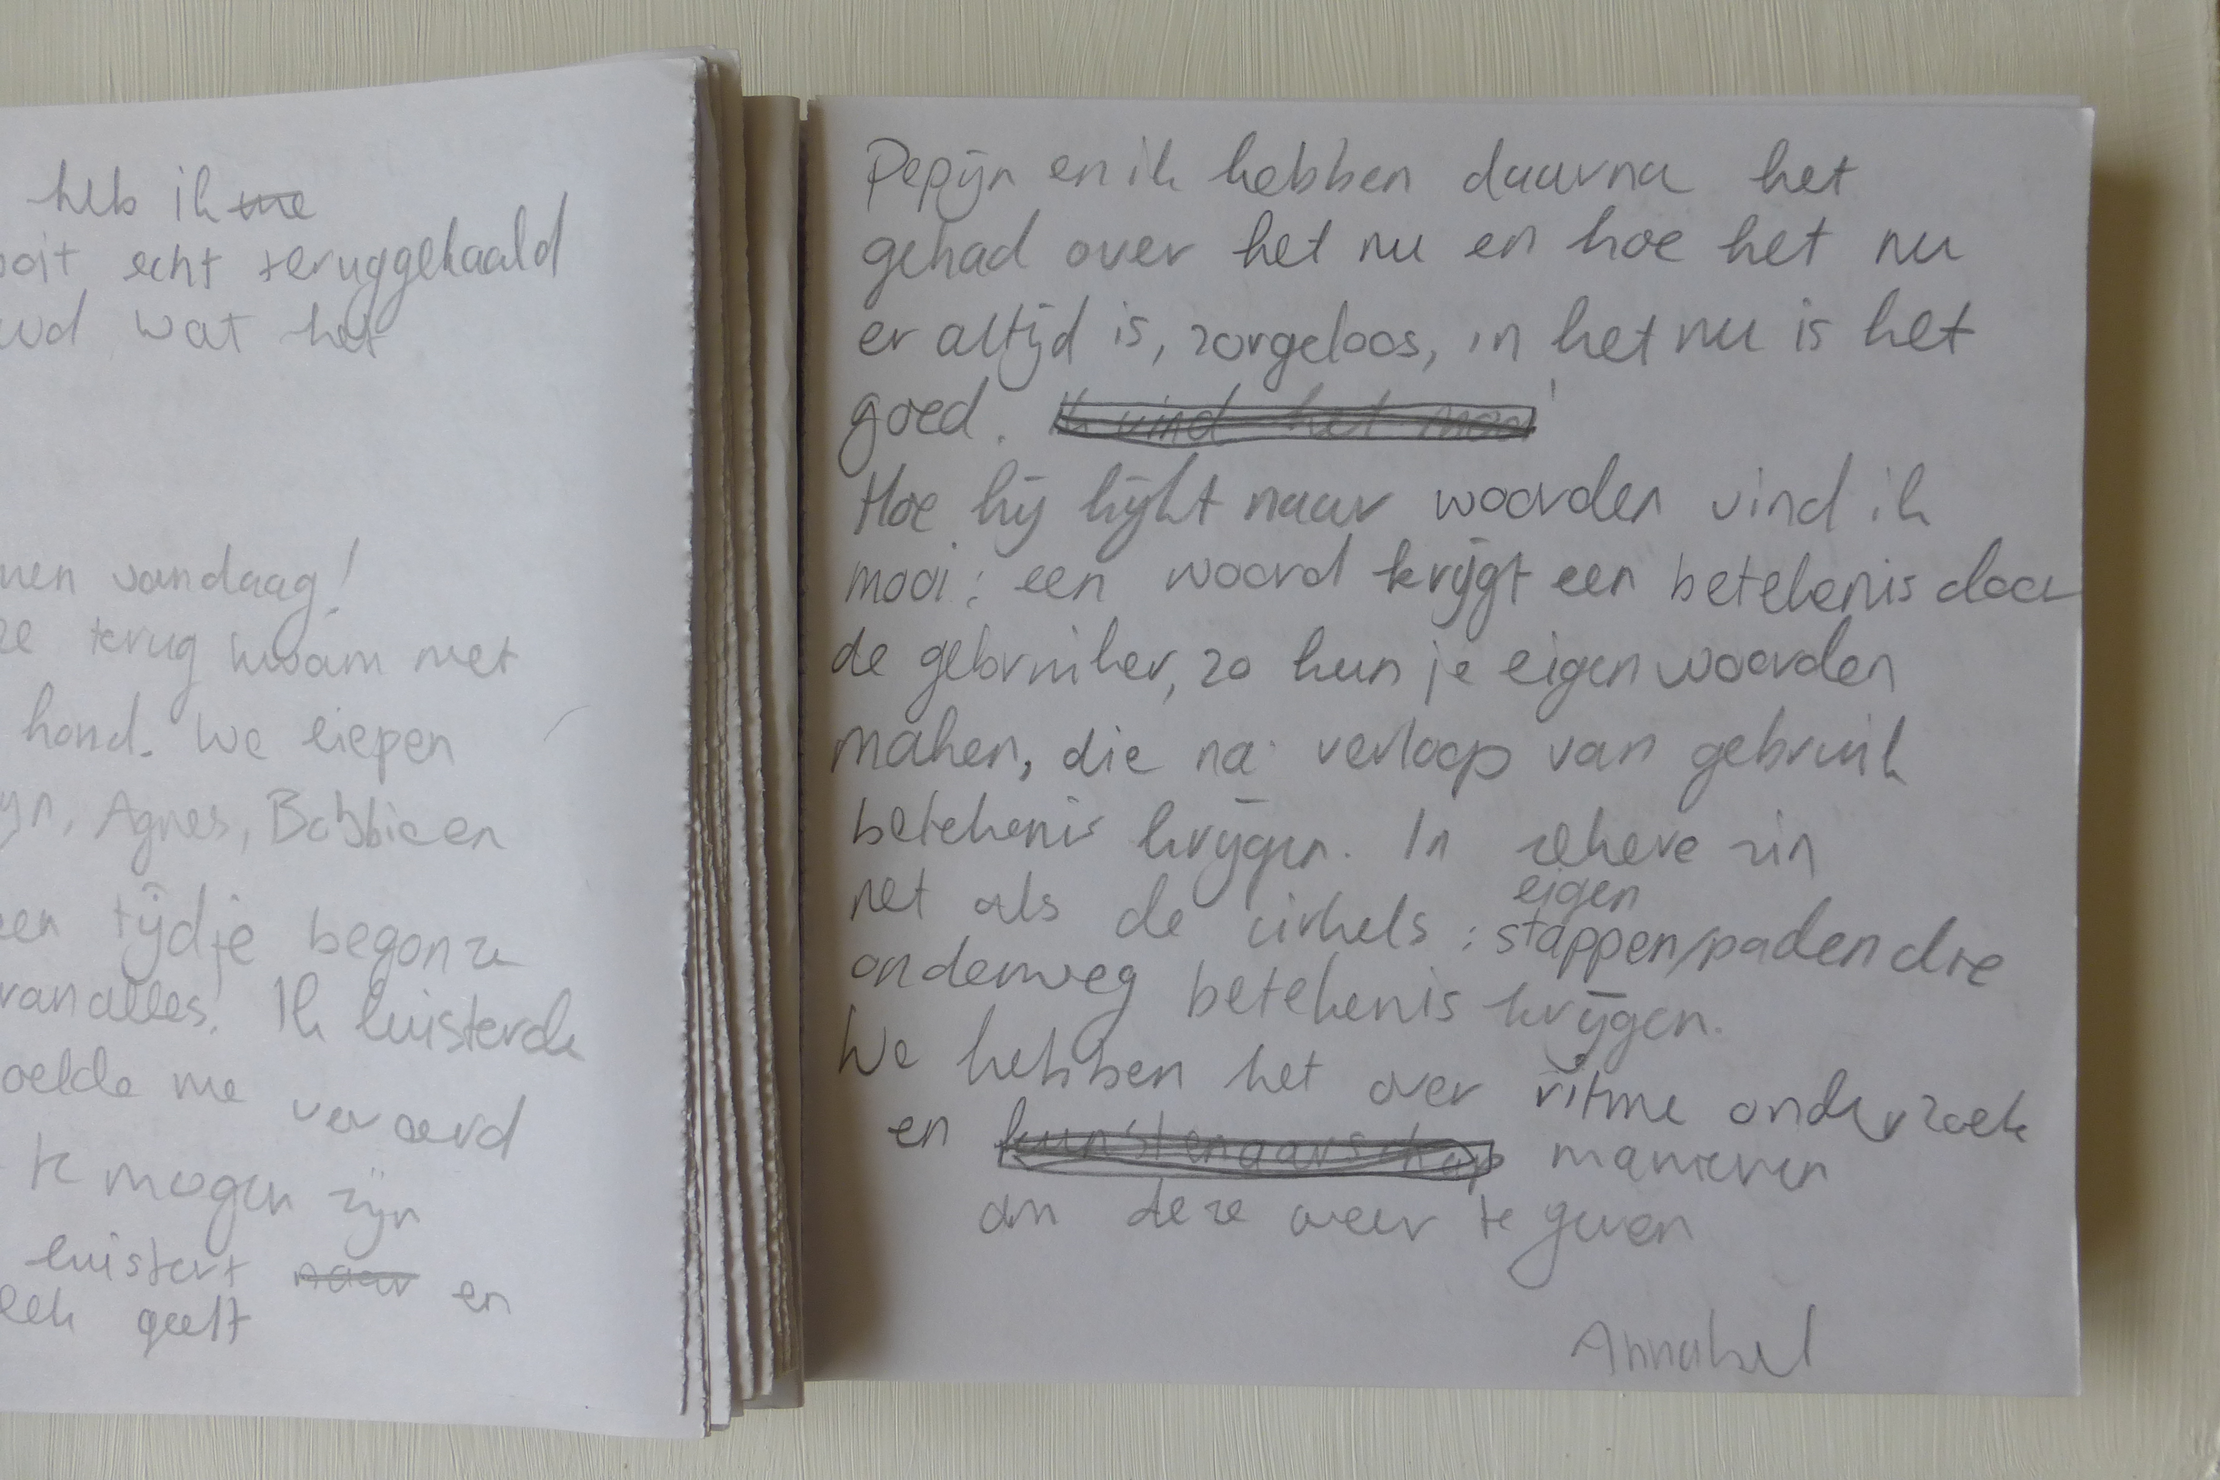 heb ik me
ooit echt teruggehaald
wat het
vandaag!
ze terug kwam met
hond. We liepen
Agnes, Bobbie en
een tijdje begon ze
van alles. Ik luisterde
voelde me vervoerd
te mogen zijn
luistert naar en
geeft
Pepijn en ik hebben daarna het
gehad over het nu en hoe het nu
er altijd is, zorgeloos, in het nu is het
goed. Ik vind het mooi
Hoe hij kijkt naar woorden vind ik
mooi: een woord krijgt een betekenis door
de gebruiker, zo kun je eigen woorden
maken, die na verloop van gebruik
betekenis krijgen. In zekere zin
net als de cirkels: eigen stappen/paden die
onderweg betekenis krijgen.
We hebben het over ritme onderzoek
en kunstenaarschap manieren
om deze weer te geven
Annabel